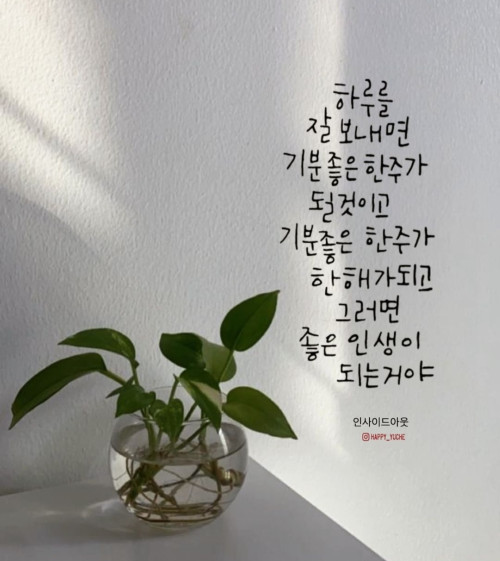 하루를
잘 보내면
기분좋은 한주가
될것이고
기분좋은 한주가
한해가되고
그러면
좋은 인생이
되는거야
인사이드아웃
HAPPY_YUCHE